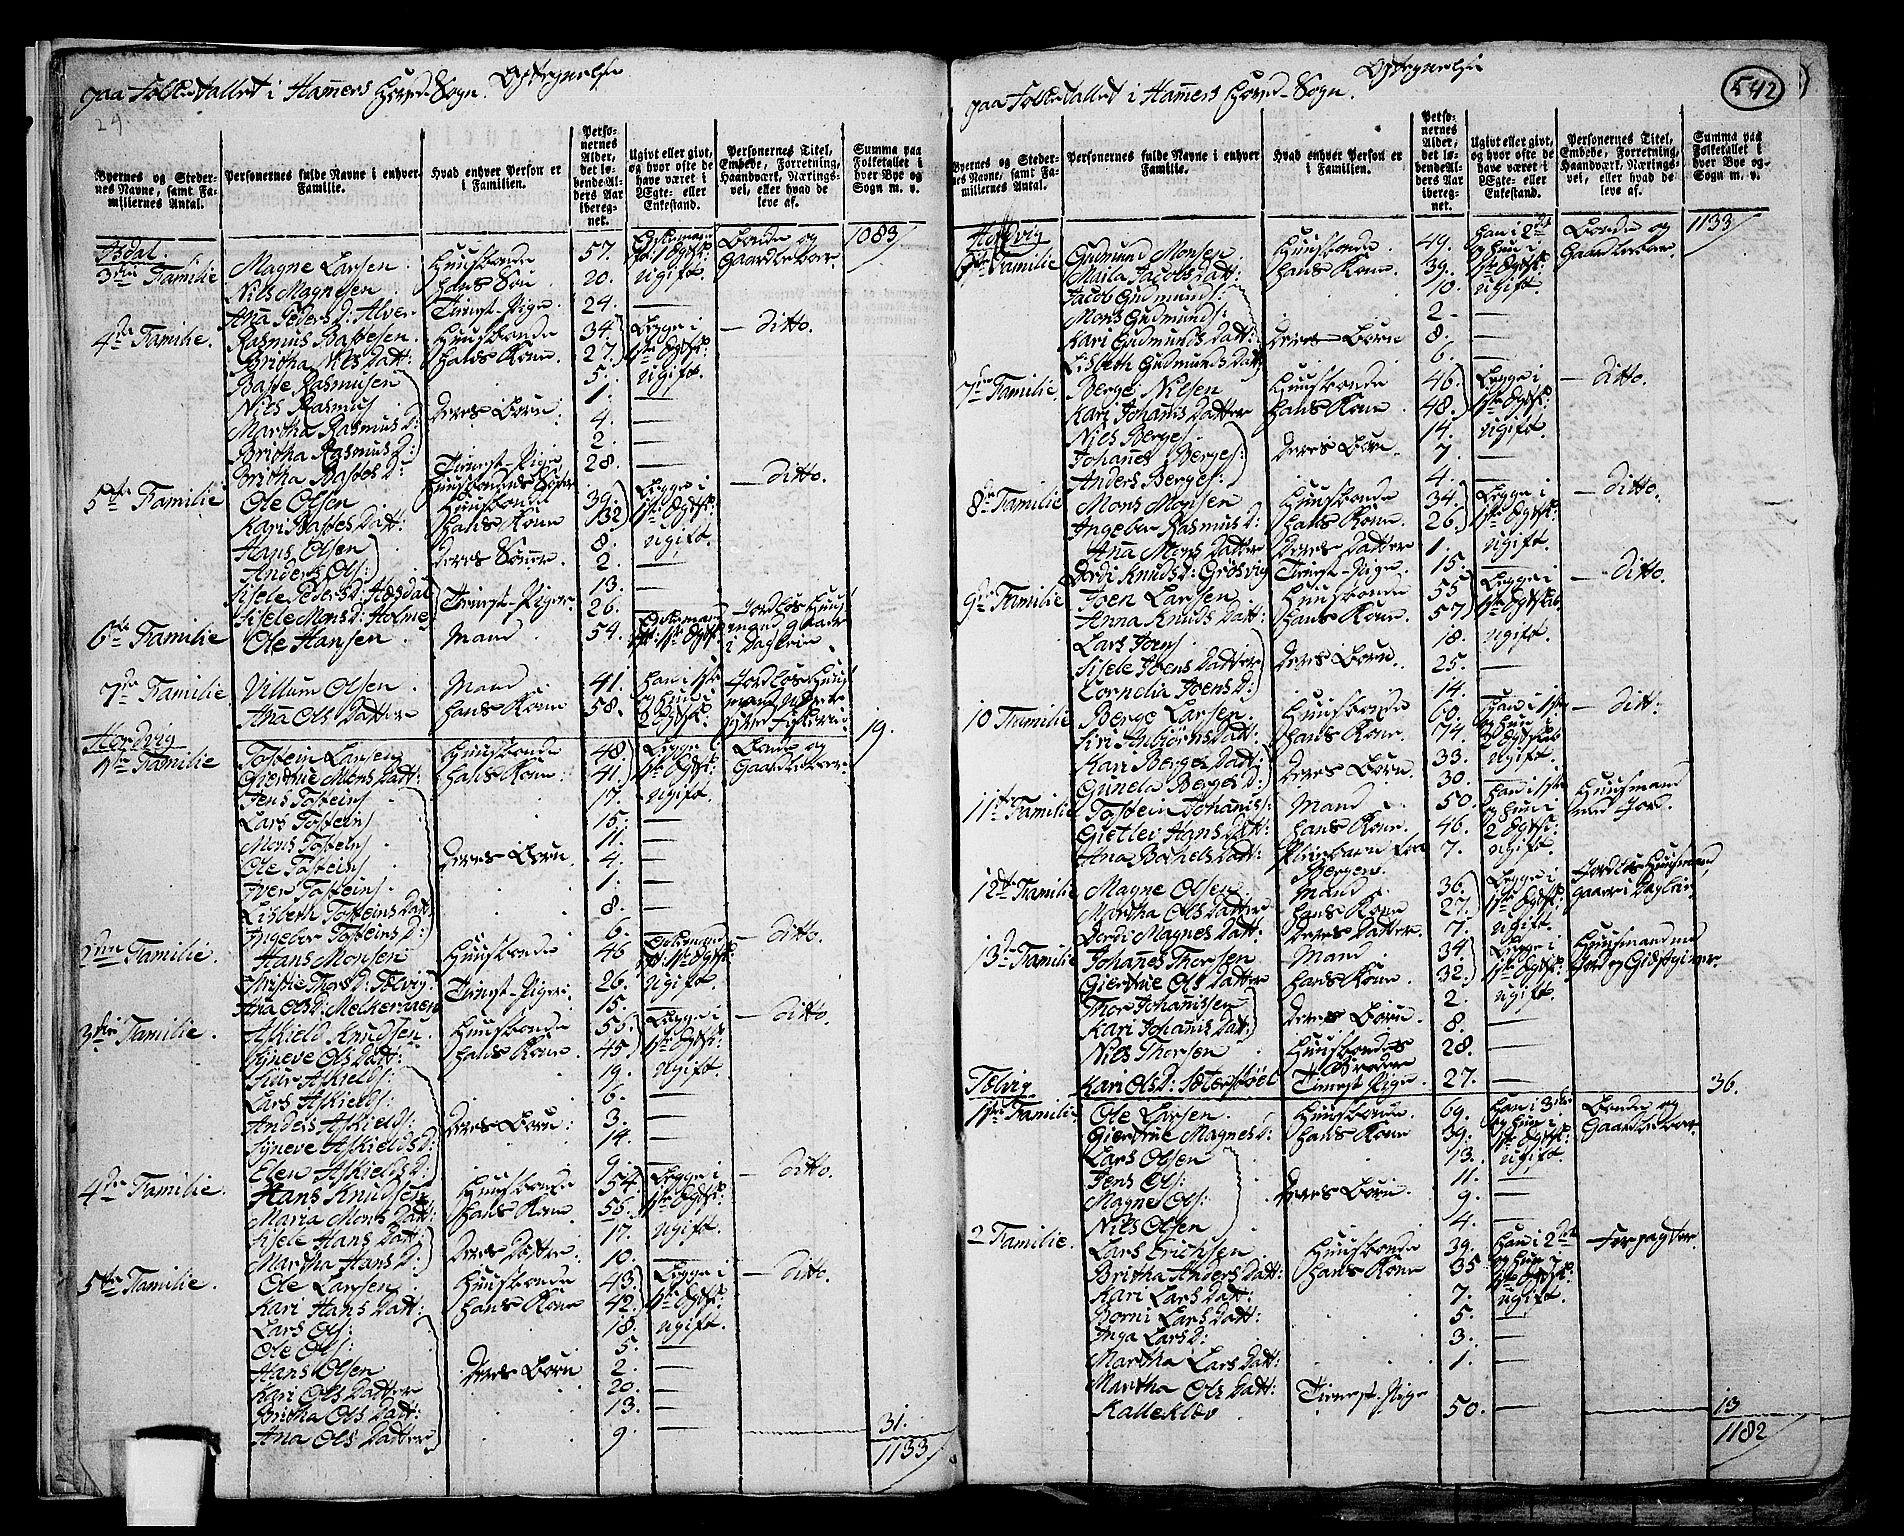 Optegnelse
paa Folketallet i Hamers Hoved-Sogn.
29.
Byernes og Stedernes Navne, samt Familiernes Antal.
Personernes fulde Navne i enhver Familie.
Hvad enhver Person er i Familien.
Personernes Alder, det løbende Alders Aar iberegnet.
Ugivt eller givt, og hvor ofte de have været i Ægte- eller Enkestand.
Personernes Titel, Embede, Forretning, Haandværk, Næringsvei, eller hvad de leve af.
Summa paa Folketallet i hver Bye og Sogn m. v.
Asdal. 1083
3die Familie Magne Larsen Huusbonde 57. Enkemand Bonde og Gaardbeboer
Niels Magnesen hans Søn 20. ugift.
Ana Peders D: Alver Tienest-Pige 24. —
4de Familie. Rasmus Bastesen Huusbonde 34 Begge i — ditto.
Britha Niels Datt: hans Kone 27. 1ste Egtsk:
Baste Rasmusen 5. ugift.
Niels Rasmus 1. —
Martha Rasmus D: deres Børn. 4. —
Britha Rasmus D: 2. —
Britha Bastes D: Tienest-Pige Huusbondens Søster 28. —
5te Familie Ole Olsen Huusbonde 39. Begge i — ditto.
Kari Bastes Datt: hans Kone 32 1ste Egtsk:
Hans Olsen 8. ugift.
Anders Ols: deres Sønner 2. —
Sisele Peders D: Hæsdal 13. —
Sisele Mons D: Holme Tienest-Piger. 26. —
6te Familie Ole Hansen Mand 54. Enkemand Jordløs Huusmand gaaer i Dagleie
7de Familie Villum Olsen Mand 41. han i 1ste Jordløs Huusmand
Ana Ols Datter hans Kone 58. og hun i 2 Egtsk. 19.
Hordvig
1ste Familie Tostein Larsen Huusbonde 48. Begge i Bonde og
Giertrue Mons Datt: hans Kone 41. 1ste Egtsk: Gaardbeboer
Jens Tosteins 17. ugift.
Lars Tosteins 15. —
Mons Tosteins 11. —
Ole Tosteins deres Børn. 4. —
Iver Tosteins 1. —
Lisbeth Tosteins Datt 8. —
Ingebor Tosteins D: 6. —
2den Familie. Hans Monsen Huusbonde 46 Enkemand — ditto.
Christie Thors D: Tælvig 26. ugift.
Ana Ols D: Melkeraaen Tienest-Piger. 15. —
3die Familie Askield Knudsen Huusbonde 55. Begge i — ditto.
Syneve Ols Datt: hans Kone 45. 1ste Egtsk:
Siur Askields: 19. ugift.
Lars Askields: 6. —
Anders Askields: deres Børn. 3. —
Syneve Askields D: 14. —
Elen Askields D: 9. —
4de Familie. Hans Knudsen Huusbonde 54 Begge i — ditto.
Maria Mons Datt hans Kone 55. 1ste Egtsk:
Sisele Hans Datt: 17. ugift.
Martha Hans D: deres Datter 10. —
5te Familie Ole Larsen Huusbonde 43. Begge i — ditto.
Kari Hans Datt: hans Kone 42. 1ste Egtsk:
Lars Ols: 18. ugift.
Ole Ols: 5. —
Hans Olsen deres Børn 2. —
Kari Ols Datter 20. —
Britha Ols Datt: 13. —
Ana Ols Datter 9. — 31.
1133
Optegnelse
paa Folketallet i Hamers Hoved-Sogn.
542
Byernes og Stedernes Navne, samt Familiernes Antal.
Personernes fulde Navne i enhver Familie.
Hvad enhver Person er i Familien.
Personernes Alder, det løbende Alders Aar iberegnet.
Ugivt eller givt, og hvor ofte de have været i Ægte- eller Enkestand.
Personernes Titel, Embede, Forretning, Haandværk, Næringsvei, eller hvad de leve af.
Summa paa Folketallet i hver Bye og Sogn m. v.
Hordvig 1133
6te Familie Gudmund Monsen Huusbonde 49. han i 2det Bonde og
Maila Jacobs Datt: hans Kone 39. og hun i 1ste Egtsk: Gaardbeboer
Jacob Gudmunds: 10. ugift.
Mons Gudmunds: 2 —
Kari Gudmunds Datt: deres Børn 8. —
Lisbeth Gudmunds Datt 6. —
7de Familie Berge Nilsen Huusbonde 46. Begge i — ditto.
Kari Johanis Datter hans Kone 48. 1ste Egtsk:
Niels Berges 14. ugift.
Johanes Berges: deres Børn. 7. —
Anders Berges: 4. —
8de Familie Mons Monsen Huusbonde 34 Begge i — ditto.
Ingebor Rasmus D: hans Kone 26. 1ste Egtsk:
Ana Mons Datter deres Datter 1. ugift.
Dordi Knuds D: Grøsvig Tienest-Pige 15. —
9de Familie Joen Larsen Huusbonde 55 Begge i — ditto.
Anna Knuds Datt: hans Kone 57 1ste Egtskab
Lars Joens 18. ugift.
Sisele Joens Datter deres Børn. 25. —
Cornelia Joens D: 14. —
10 Familie Berge Larsen Huusbonde 60. han i 1ste — ditt:
Siri Anbiørns Datt: hans Kone 74. og hun i 2 Egtskab
Kari Berges Datt: 33. ugift.
Gunela Berges D: deres Børn. 30. —
11te Familie Tostein Johanis: Mand 50. han i 1ste Huusmand
Gietlei Hans Datt: hans Kone. 46. og hun i 2 Egtsk: med Jor.
Ana Bothels Datt: Pleiebarn fra Bergen 7. ugift.
12te Familie Magne Olsen Mand 36. Begge i Jordløs Huusmand,
Martha Ols Datter hans Kone 27. 1ste Egtsk: gaaer i Dagleie
Dordi Magnes Datt: deres Datter. 7. ugift.
13de Familie Johanes Thorsen Mand 34. Begge i Huusmand med
Giertrue Ols Datter hans Kone 32. 1ste Egtsk: Jord og Giestgiver
Thor Johanissen 2. ugift.
Kari Johanis Datt: deres Børn. 8. —
Niels Thorsen Huusbondes Broder 28. —
Kari Ols D: Sæterstøel Tienest-Pige 27. — 36.
Tælvig
1ste Familie. Ole Larsen Huusbonde 69. han i 3die Bonde og
Giertrue Magnes D: hans Kone 39. og hun i 1ste Egtsk: Gaardbeboer
Lars Olsen 13. ugift.
Jens Ols: 11. —
Magne Ols: deres Børn. 9. —
Niels Olsen 4. —
2 Familie. Lars Erichsen Huusbonde 39. han i 2det Forpagter.
Britha Anders Datt: hans Kone 35 og hun i 1ste Egtsk:
Kari Lars Datt: 7. ugift.
Borni Lars Datt: 5. —
Inga Lars D: 3. —
Martha Lars Datt: 1. —
Martha Ols Datt:
Kalleklev Tienest-Pige 50. — 13
1182